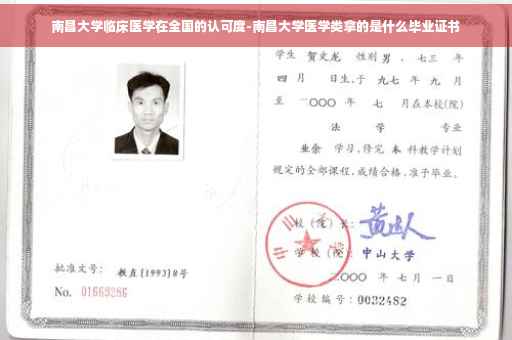 南昌大学临床医学在全国的认可度-南昌大学医学类拿的是什么毕业证书
学生 贺文龙 性别 男 、七三 年
四 月 日生,于 九七 年 九 月
至 二〇〇〇 年 七 月在本校(院)
法 学 专业
业余 学习,修完 本 科教学计划
规定的全部课程,成绩合格,准予毕业。
校(院)长:
学校(院): 中山大学
二〇〇〇 年 七 月 一 日
批准文号: 教直(1993)8号
No. 01669286
学校编号: 0032482